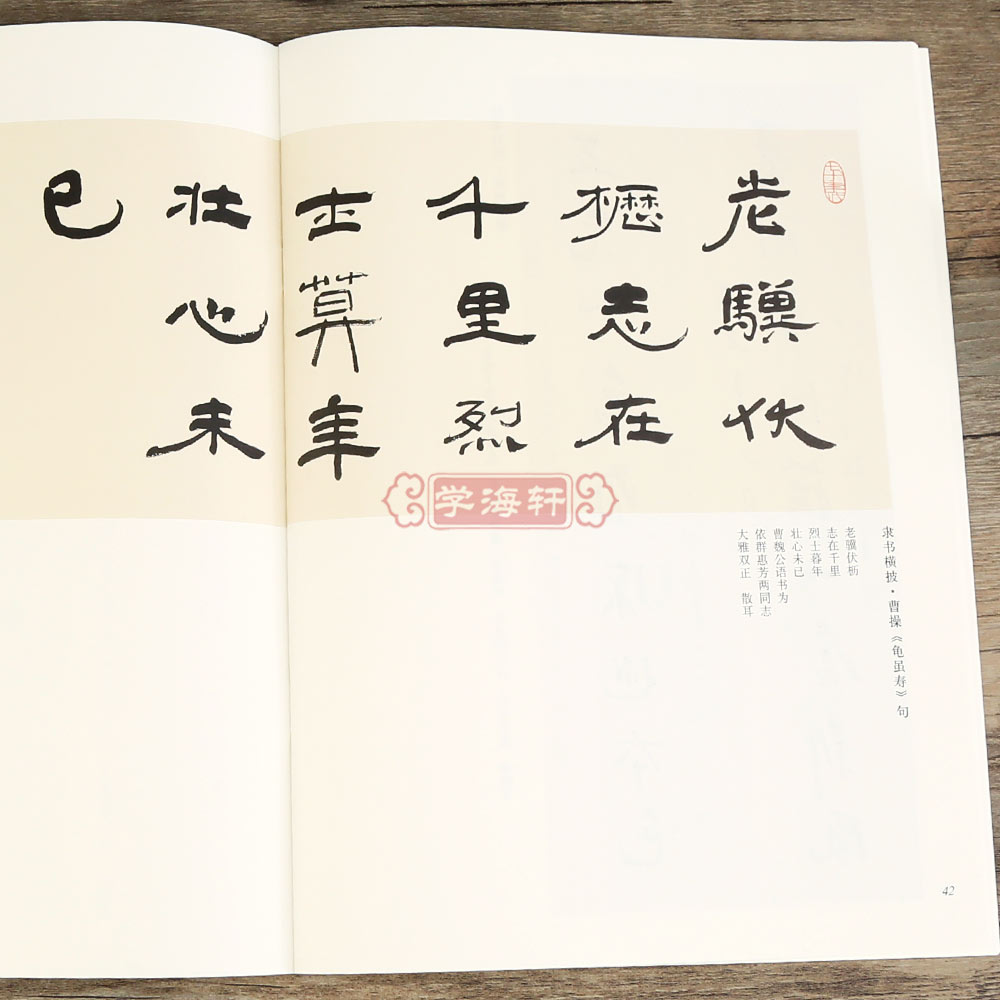 老驥伏
櫪志在
千里烈
士莫年
壮心未
已
学海轩
隶书横披·曹操《龟虽寿》句
老骥伏枥
志在千里
烈士暮年
壮心未已
曹魏公语书为
依群惠芳两同志
大雅双正 散耳
42